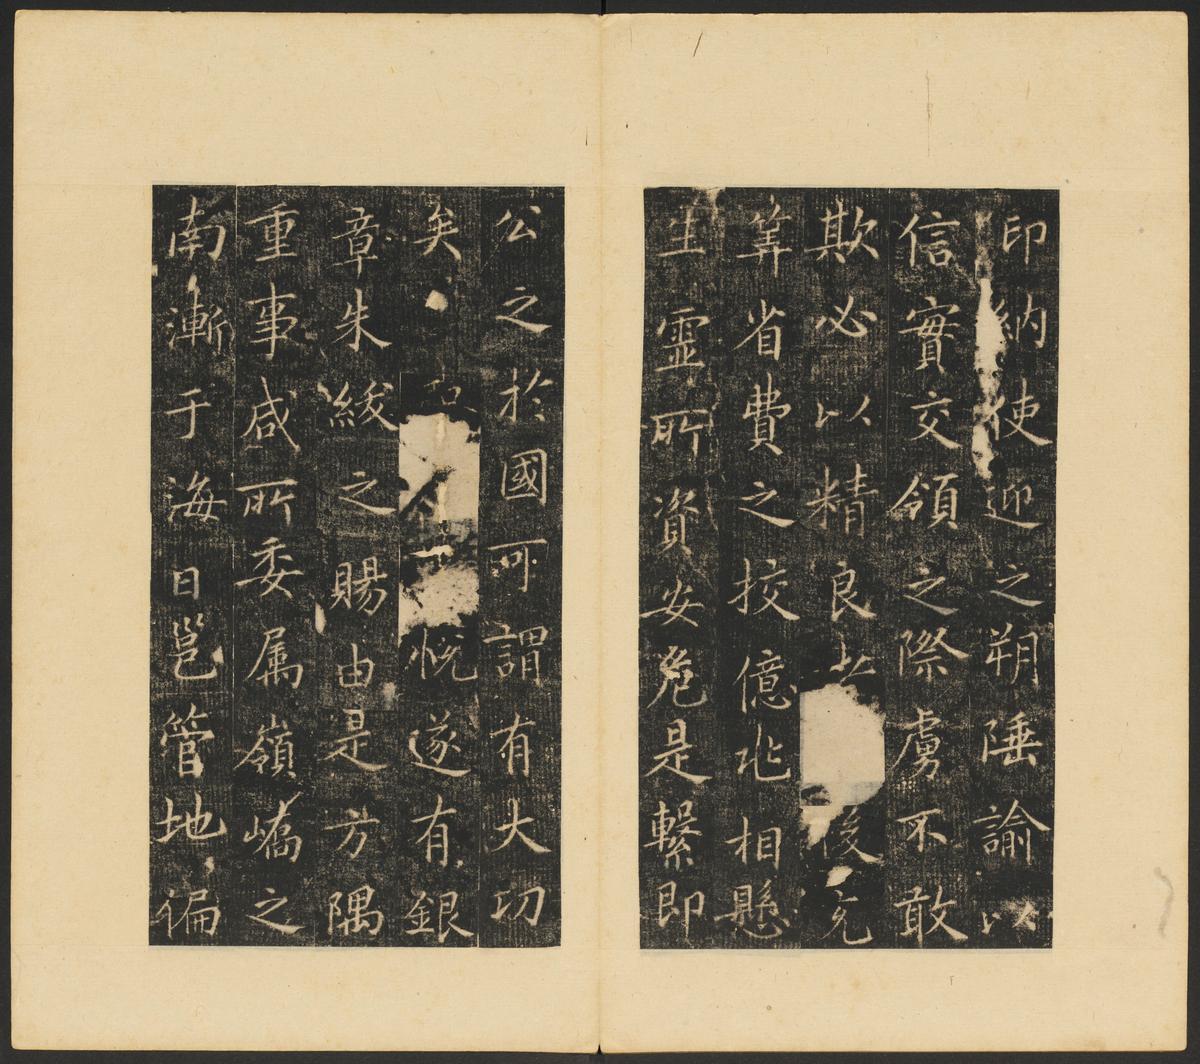 印納使迎之朔陲諭以
信實交領之際虜不敢
欺必以精良者後充
筭省費之挍億兆相懸
生靈所資安危是繫即
公之於國可謂有大功
矣悅遂有銀
章朱紱之賜由是方隅
重事咸所委属嶺嶠之
南漸于海日邕管地偏